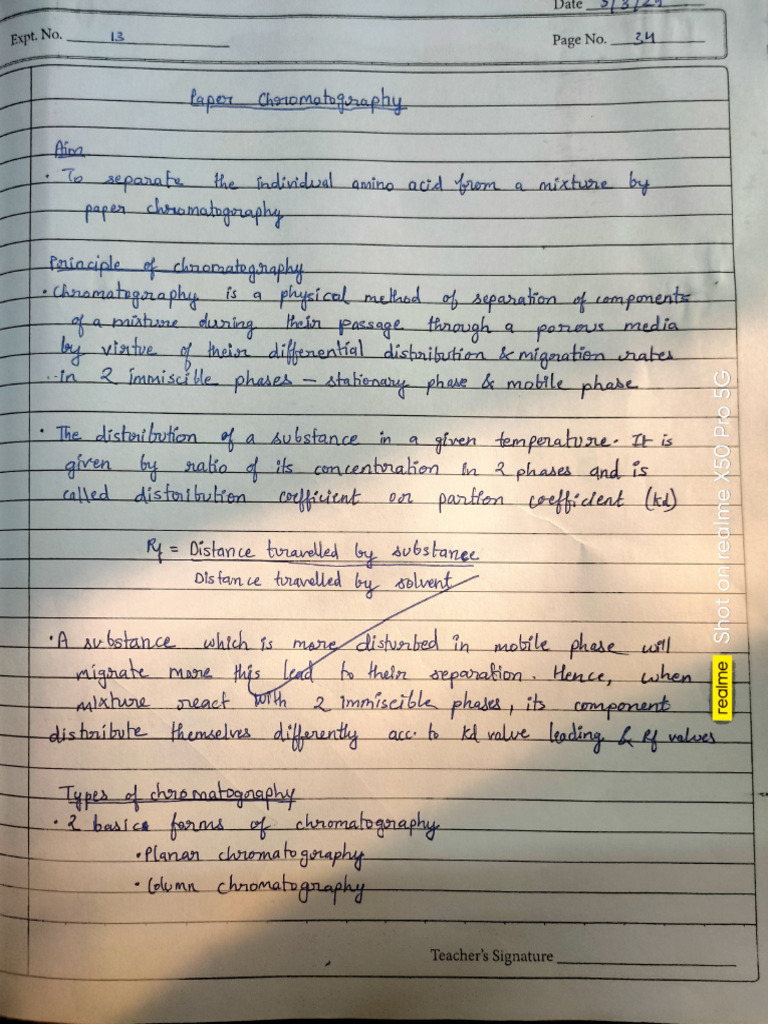 Date 5/3/24
Expt. No. 13
Page No. 34
Paper Chromatography
Aim
• To separate the individual amino acid from a mixture by
paper chromatography
Principle of chromatography
• Chromatography is a physical method of separation of components
of a mixture during their passage through a porous media
by virtue of their differential distribution & migration rates
in 2 immiscible phases – stationary phase & mobile phase
• The distribution of a substance in a given temperature. It is
given by ratio of its concentration in 2 phases and is
called distribution coefficient or partion coefficient (kd)
Rf = Distance travelled by substance
Distance travelled by solvent
• A substance which is more disturbed in mobile phase will
migrate more this lead to their separation. Hence, when
mixture react with 2 immiscible phases, its component
distribute themselves differently acc. to Kd value leading & Rf values
Types of chromatography
• 2 basics forms of chromatography
• Planar chromatography
• Column chromatography
Teacher's Signature
Shot on realme X50 Pro 5G
realme